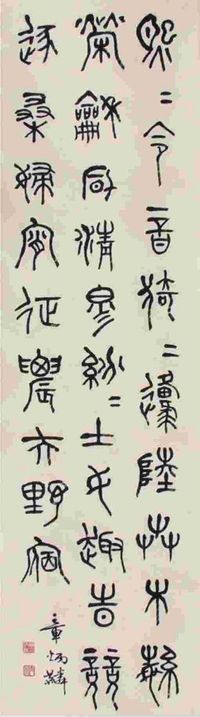 熙〻令音猗〻邍陸卉木緐
榮龢風清穆紛〻士女趣時競
逐桑婦宵征農夫野宿
章炳麟